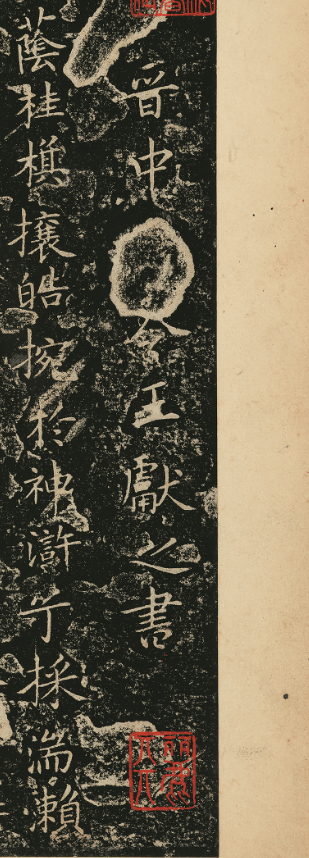 晉中令王獻之書
蔭桂旗攘皓腕於神滸兮採湍瀨